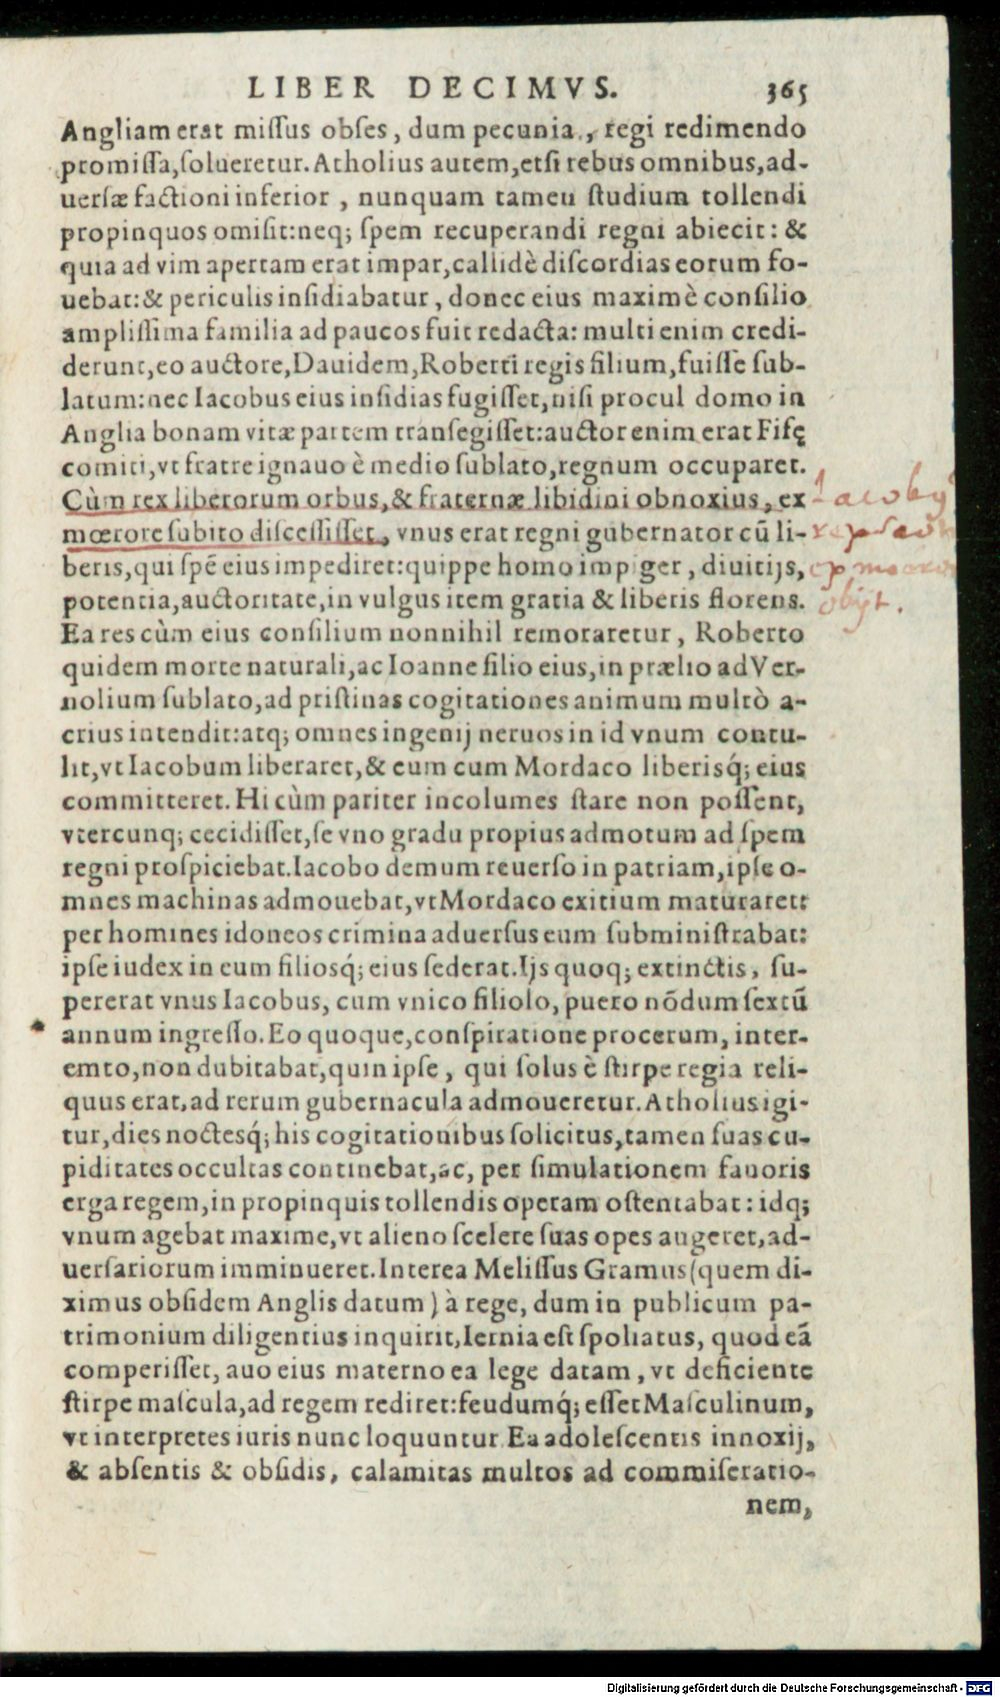 LIBER DECIMVS. 365
Angliam erat miſſus obſes, dum pecunia, regi redimendo
promiſſa, ſolueretur. Atholius autem, etſi rebus omnibus, ad-
uerſæ factioni inferior, nunquam tamen ſtudium tollendi
propinquos omiſit: neq; ſpem recuperandi regni abiecit: &
quia ad vim apertam erat impar, callidè diſcordias eorum fo-
uebat: & periculis inſidiabatur, donec eius maximè conſilio
ampliſſima familia ad paucos fuit redacta: multi enim credi-
derunt, eo auctore, Dauidem, Roberti regis filium, fuiſſe ſub-
latum: nec Iacobus eius inſidias fugiſſet, niſi procul domo in
Anglia bonam vitæ partem tranſegiſſet: auctor enim erat Fifę
comiti, vt fratre ignauo è medio ſublato, regnum occuparet.
Cùm rex liberorum orbus, & fraternæ libidini obnoxius, ex
mœrore ſubito diſceſſiſſet, vnus erat regni gubernator cũ li-
beris, qui ſpẽ eius impediret: quippe homo impiger, diuitijs,
potentia, auctoritate, in vulgus item gratia & liberis florens.
Ea res cùm eius conſilium nonnihil remoraretur, Roberto
quidem morte naturali, ac Ioanne filio eius, in prælio ad Ver-
nolium ſublato, ad priſtinas cogitationes animum multò a-
crius intendit: atq; omnes ingenij neruos in id vnum contu-
lit, vt Iacobum liberaret, & eum cum Mordaco liberisq́; eius
committeret. Hi cùm pariter incolumes ſtare non poſſent,
vtercunq; cecidiſſet, ſe vno gradu propius admotum ad ſpem
regni proſpiciebat. Iacobo demum reuerſo in patriam, ipſe o-
mnes machinas admouebat, vt Mordaco exitium maturaret:
per homines idoneos crimina aduerſus eum ſubminiſtrabat:
ipſe iudex in eum filiosq́; eius ſederat. Ijs quoq; extinctis, ſu-
pererat vnus Iacobus, cum vnico filiolo, puero nõdum ſextũ
annum ingreſſo. Eo quoque, conſpiratione procerum, inter-
emto, non dubitabat, quin ipſe, qui ſolus è ſtirpe regia reli-
quus erat, ad rerum gubernacula admoueretur. Atholius igi-
tur, dies noctesq́; his cogitationibus ſolicitus, tamen ſuas cu-
piditates occultas continebat, ac, per ſimulationem fauoris
erga regem, in propinquis tollendis operam oſtentabat: idq;
vnum agebat maxime, vt alieno ſcelere ſuas opes augeret, ad-
uerſariorum imminueret. Interea Meliſſus Gramus (quem di-
ximus obſidem Anglis datum) à rege, dum in publicum pa-
trimonium diligentius inquirit, Iernia eſt ſpoliatus, quod eã
comperiſſet, auo eius materno ea lege datam, vt deficiente
ſtirpe maſcula, ad regem rediret: feudumq́; eſſet Maſculinum,
vt interpretes iuris nunc loquuntur. Ea adoleſcentis innoxij,
& abſentis & obſidis, calamitas multos ad commiſeratio-
nem,
Iacobus
rex
ex mœror
obijt.
Digitalisierung gefördert durch die Deutsche Forschungsgemeinschaft - DFG